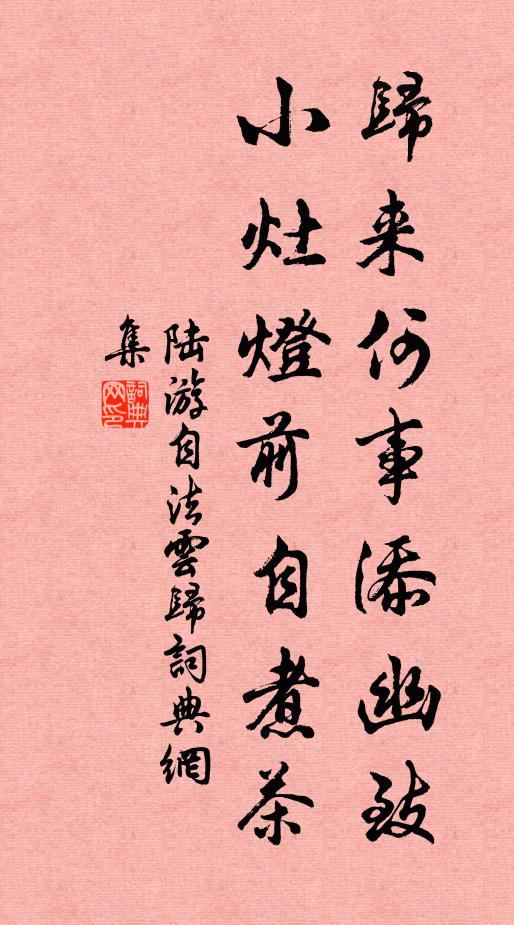 歸来何事添幽致
小灶燈前自煮茶
陆游自法雲歸詞典網
集
詞典网印